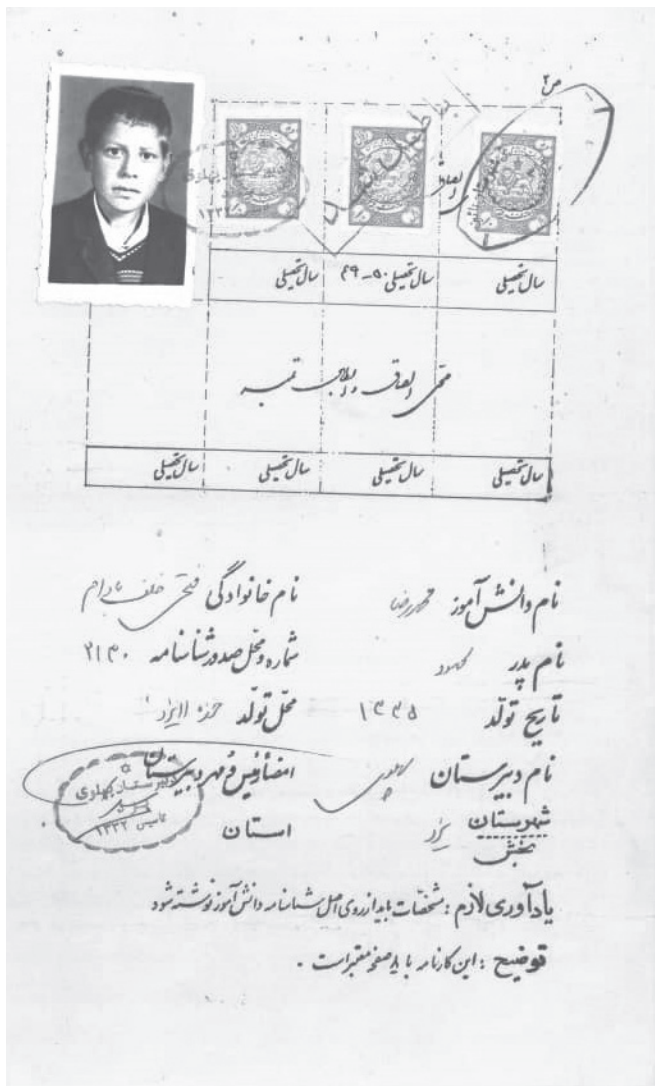 ص۲
سال تحصیلی
سال تحصیلی ۵۰ - ۴۹
سال تحصیلی
محل الصاق و ابطال تمبر
سال تحصیلی
سال تحصیلی
سال تحصیلی
سال تحصیلی
نام دانش آموز محمدرضا نام خانوادگی فتحی خلف بادام
نام پدر محمود شماره و محل صدور شناسنامه
تاریخ تولّد ۱۳۳۵ محلّ تولّد
نام دبیرستان پهلوی امضاء رئیس و مهر دبیرستان
دبیرستان پهلوی
تأسیس ۱۳۲۲
شهرستان یزد استان
بخش
یادآوری لازم : مشخصّات باید از روی اصل شناسنامه دانش آموز نوشته شود
توضیح : این کارنامه با صفحه معتبر است .